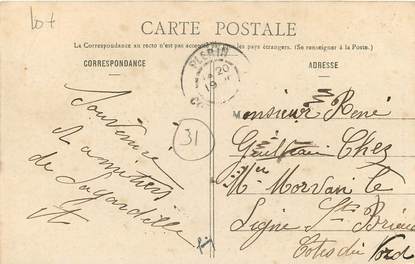 lot
CARTE POSTALE
La Correspondance au recto n'est pas acceptée par tous les pays étrangers. (Se renseigner à la Poste.)
CORRESPONDANCE
ADRESSE
PLERIN
20
19
31
Souvenir
et amitiés
de Lagardille
Monsieur René
Chez
Mr Morvan le
Ligne St Brieuc
Cotes du Nord